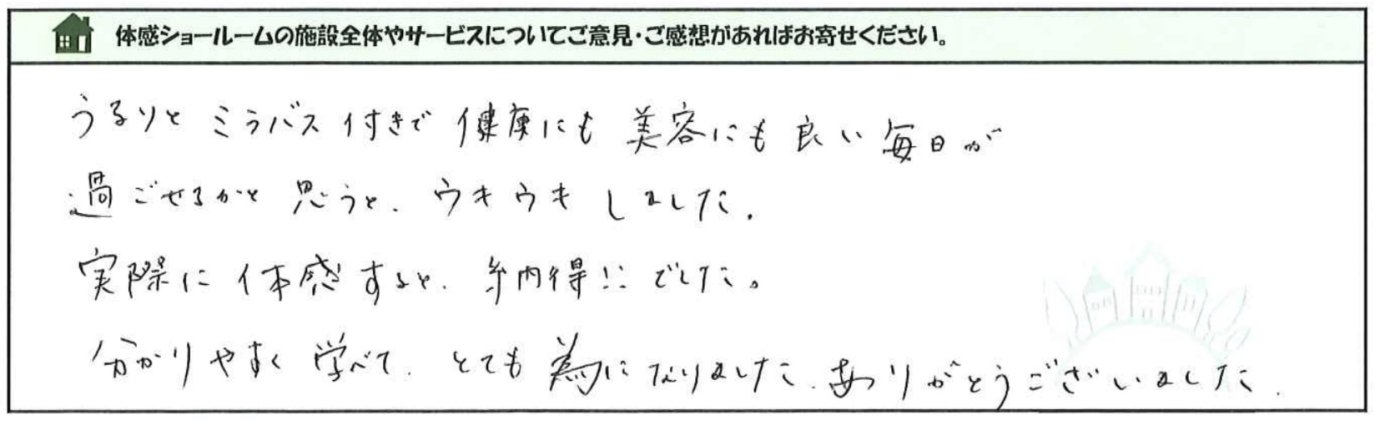 体感ショールームの施設全体やサービスについてご意見・ご感想があればお寄せください。
うるりとミラバス付きで健康にも美容にも良い毎日が
過ごせるかと思うと、ウキウキしました。
実際に体感すると、納得!!でした。
分かりやすく学べて、とても為になりました。ありがとうございました。